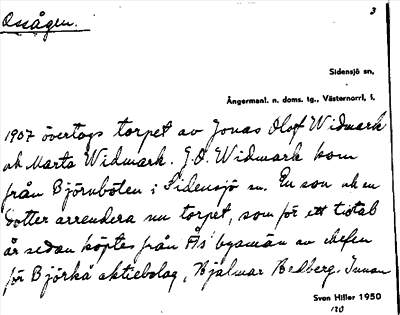 Ossågen.
3
Sidensjö sn,
Ångermanl. n. doms. tg., Västernorrl, l.
1907 övertogs torpet av Jonas Olof Widmark
och Marta Widmark. J.O. Widmark kom
från Björnböten i Sidensjö sn. En son och en
dotter arrendera nu torpet, som för ett tiotal
år sedan köptes från Ås byamän av chefen
för Björkå aktiebolag, Hjalmar Hedberg. Innan
Sven Hiller 1950
130